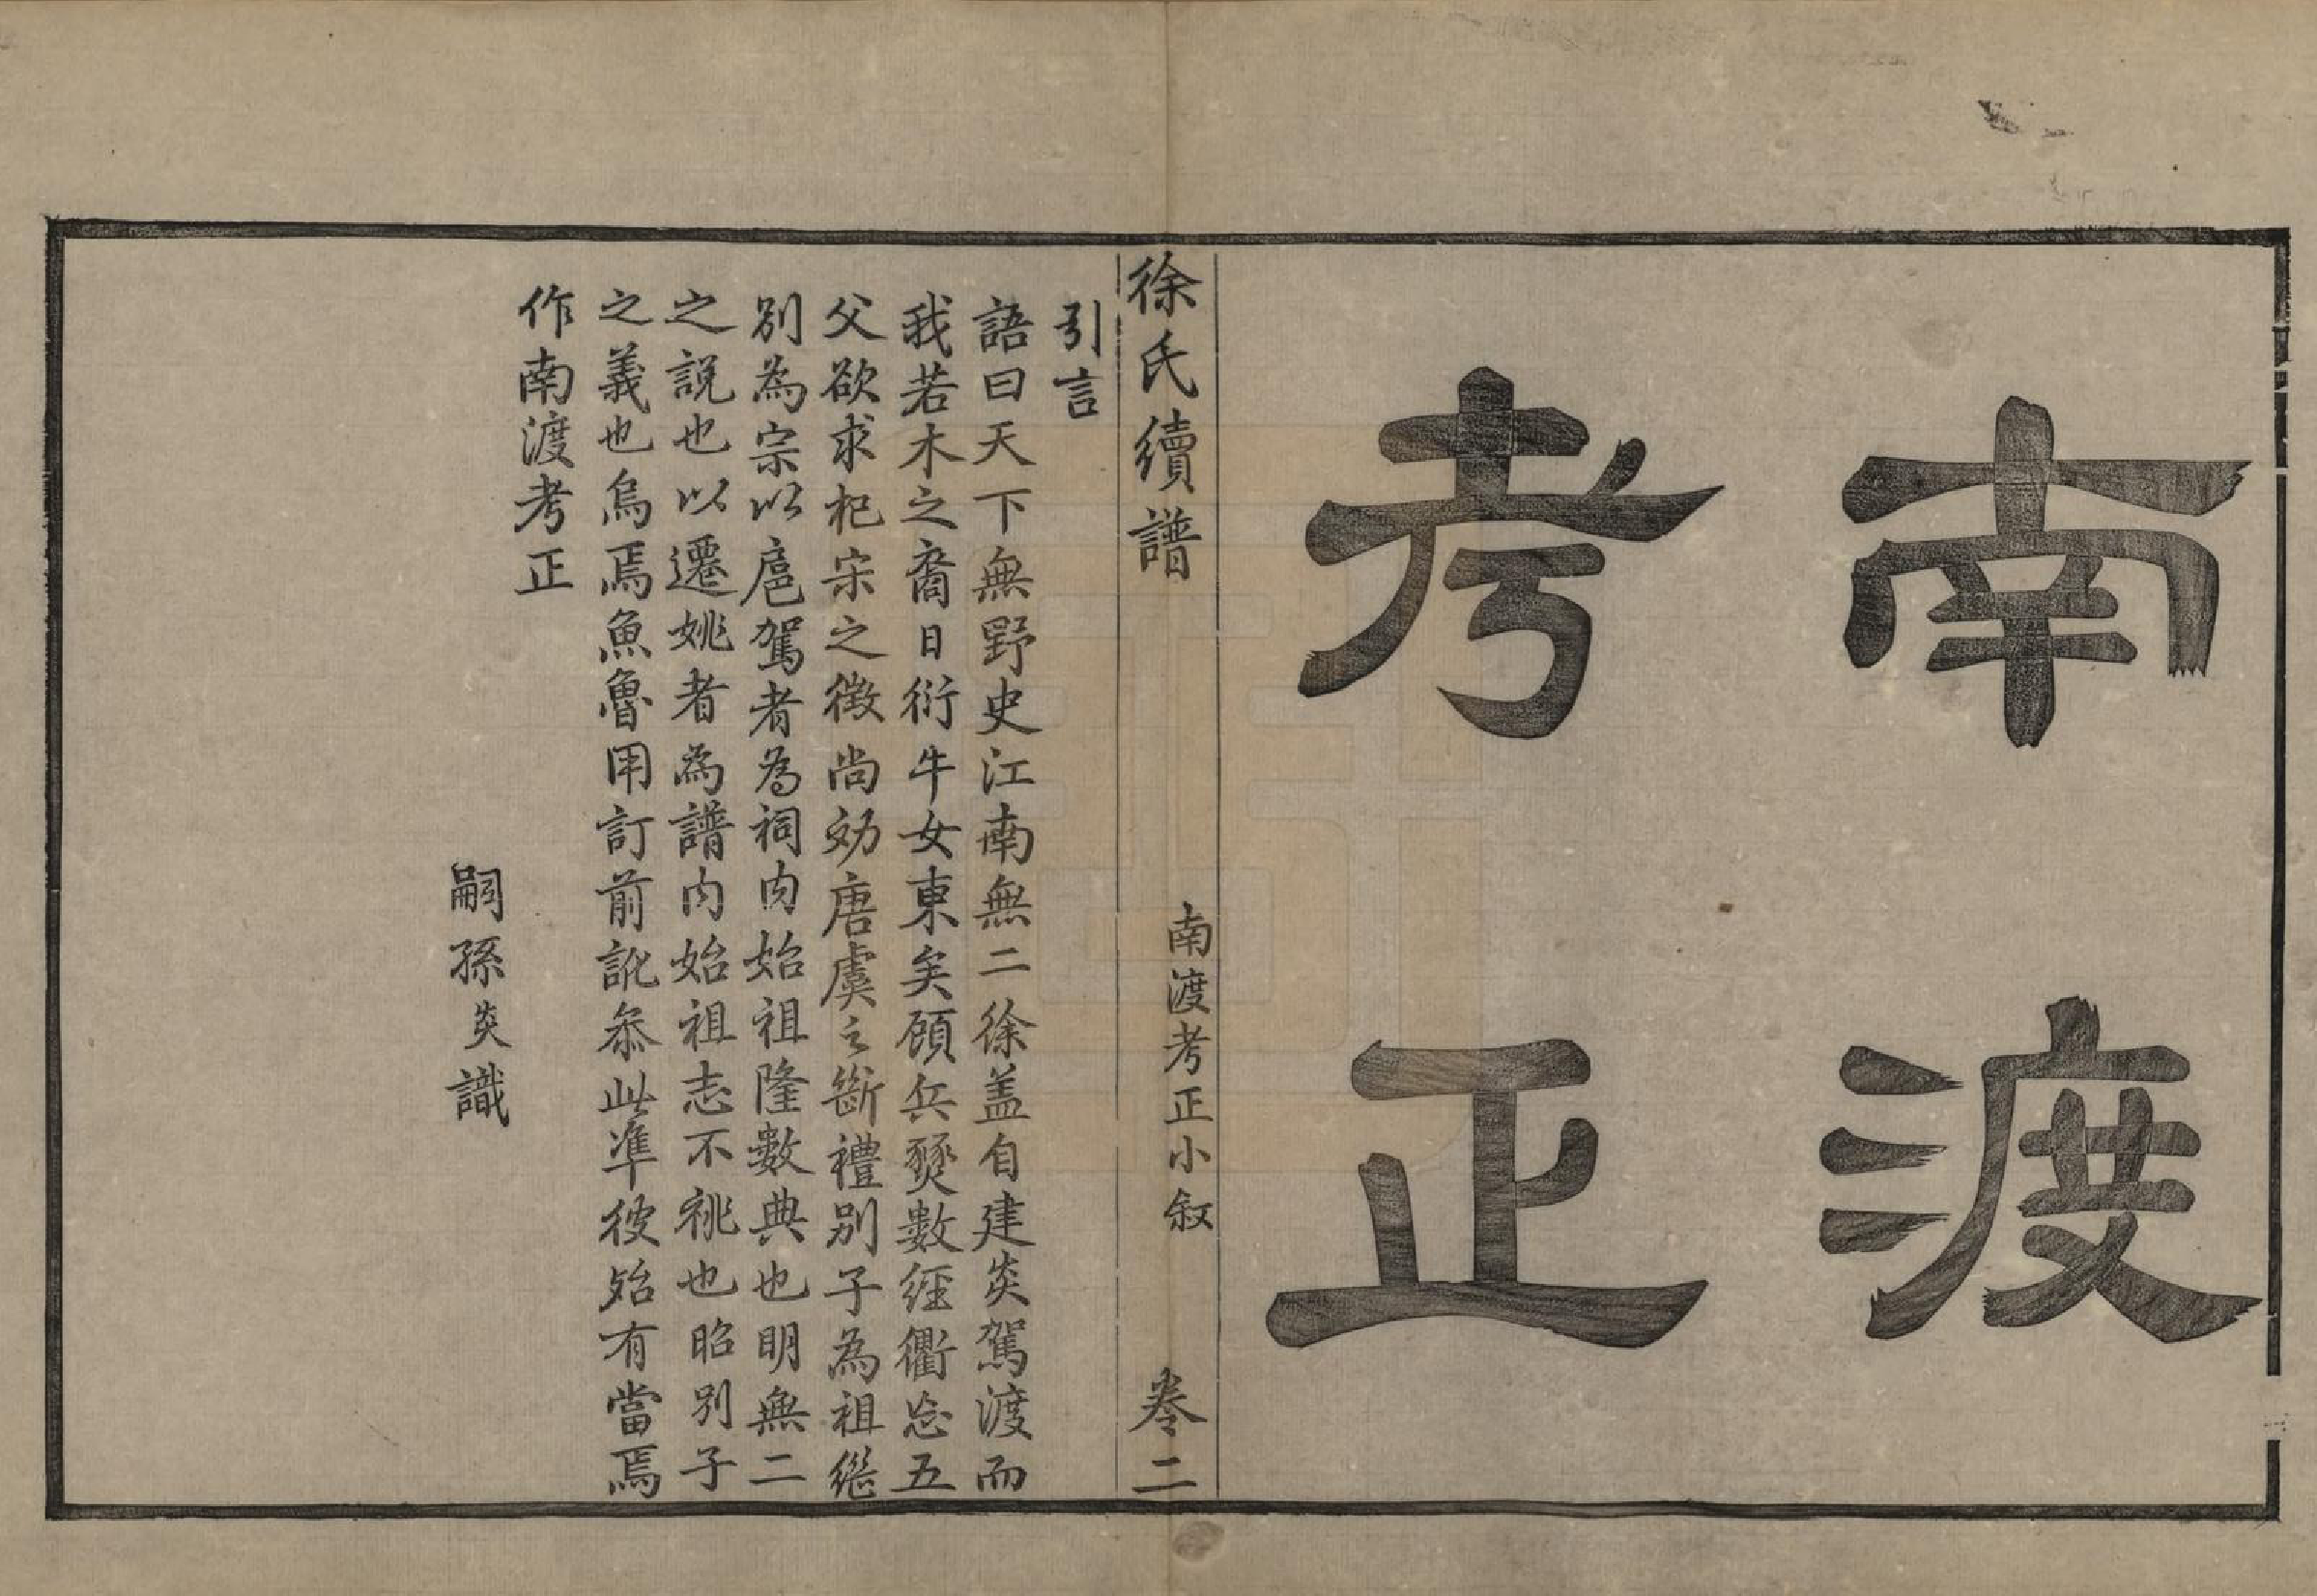 南渡
考正
徐氏續譜
南渡考正小叙
卷二
引言
語曰天下無野史江南無二徐盖自建炎駕渡而
我若木之裔日衍牛女東矣顧兵燹數經衢忩五
父欲求杞宋之徵尚効唐虞之斷禮別子為祖繼
別為宗以扈駕者為祠內始祖隆數典也明無二
之說也以遷姚者為譜內始祖志不祧也昭別子
之義也烏焉魚魯用訂前訛叅此準彼始有當焉
作南渡考正
嗣孫炎識